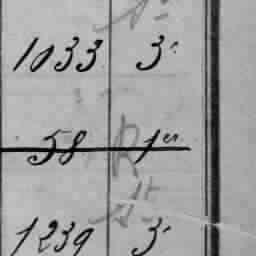 1033 3e
58 R 1er
1239 3e